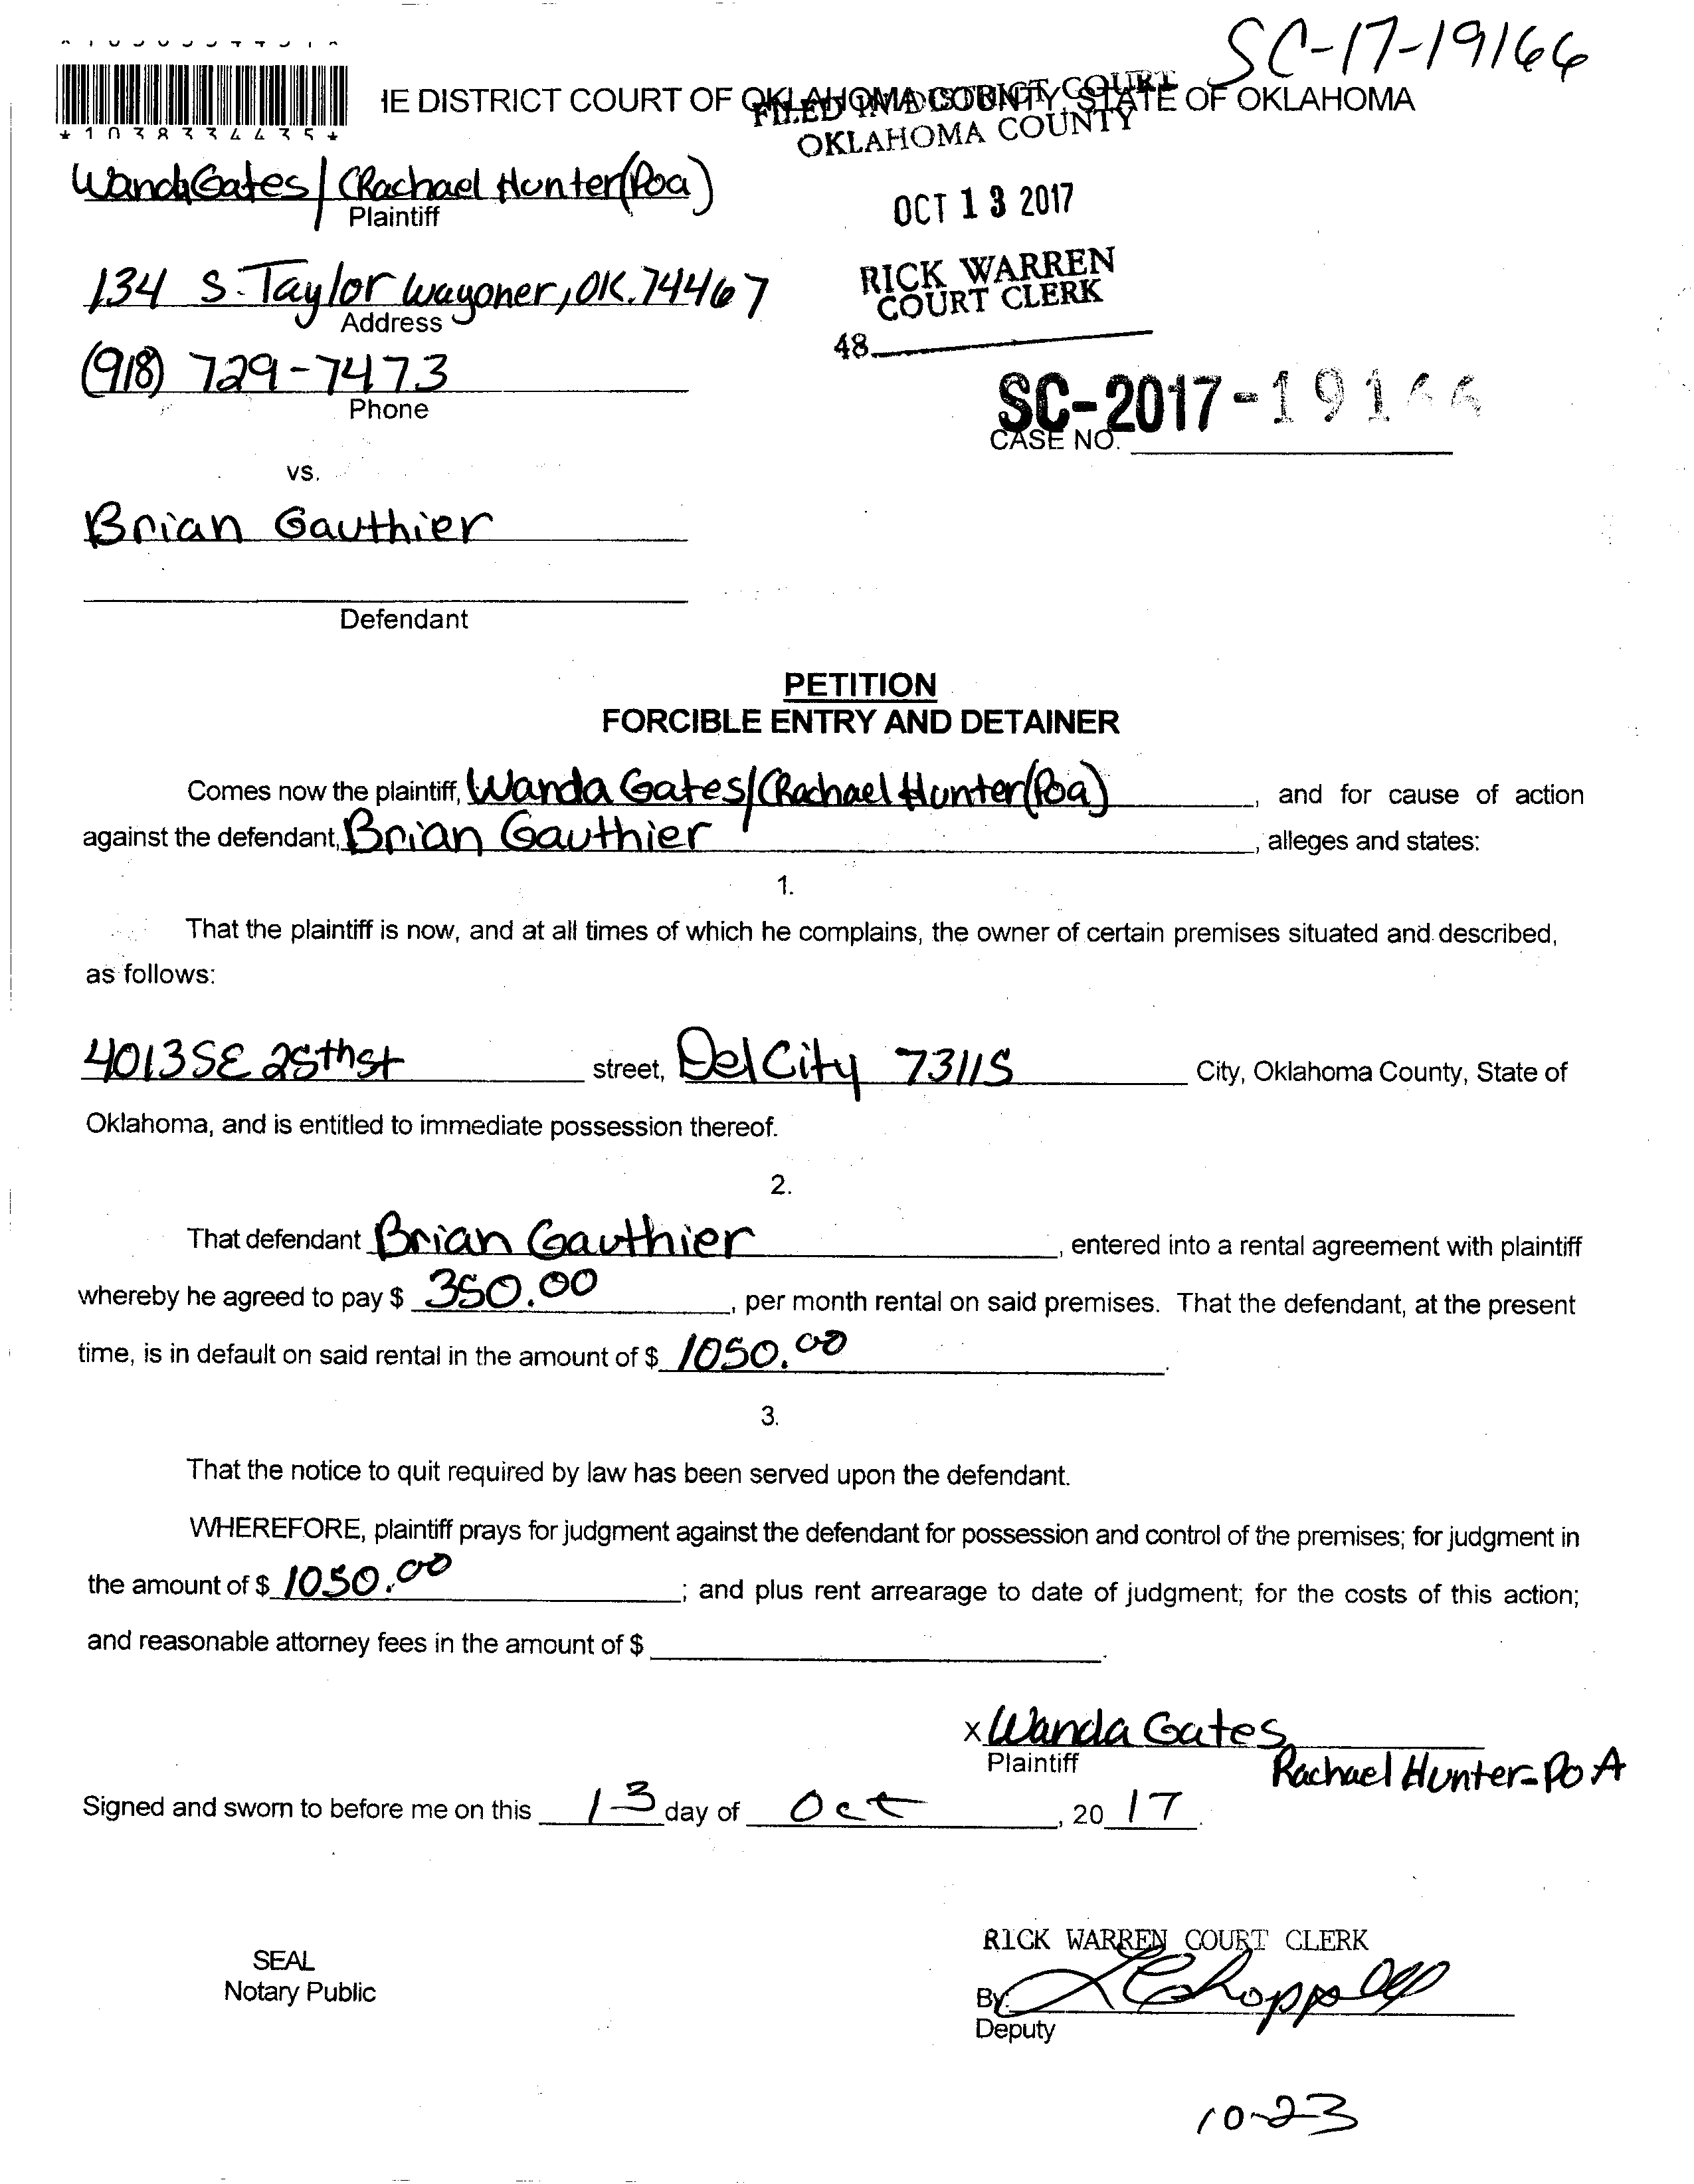 SC-17-19166
IE DISTRICT COURT OF OKLAHOMA COUNTY, STATE OF OKLAHOMA
FILED IN DISTRICT COURT
OKLAHOMA COUNTY
*1038334435*
Wanda Gates/(Rachael Hunter(Poa)
Plaintiff
OCT 13 2017
134 S. Taylor Wagoner, OK. 74467
Address
RICK WARREN
COURT CLERK
48
(918) 729-7473
Phone
SC-2017-19166
CASE NO.
vs.
Brian Gauthier
Defendant
PETITION
FORCIBLE ENTRY AND DETAINER
Comes now the plaintiff, Wanda Gates/(Rachael Hunter(Poa), and for cause of action
against the defendant, Brian Gauthier, alleges and states:
1.
That the plaintiff is now, and at all times of which he complains, the owner of certain premises situated and described,
as follows:
4013 SE 25th st street, Del City 73115 City, Oklahoma County, State of
Oklahoma, and is entitled to immediate possession thereof.
2.
That defendant Brian Gauthier, entered into a rental agreement with plaintiff
whereby he agreed to pay $ 350.00, per month rental on said premises. That the defendant, at the present
time, is in default on said rental in the amount of $ 1050.00.
3.
That the notice to quit required by law has been served upon the defendant.
WHEREFORE, plaintiff prays for judgment against the defendant for possession and control of the premises; for judgment in
the amount of $ 1050.00; and plus rent arrearage to date of judgment; for the costs of this action;
and reasonable attorney fees in the amount of $
x Wanda Gates
Plaintiff
Rachael Hunter-PoA
Signed and sworn to before me on this 13 day of Oct, 20 17.
RICK WARREN COURT CLERK
SEAL
Notary Public
By:
Deputy
10-23